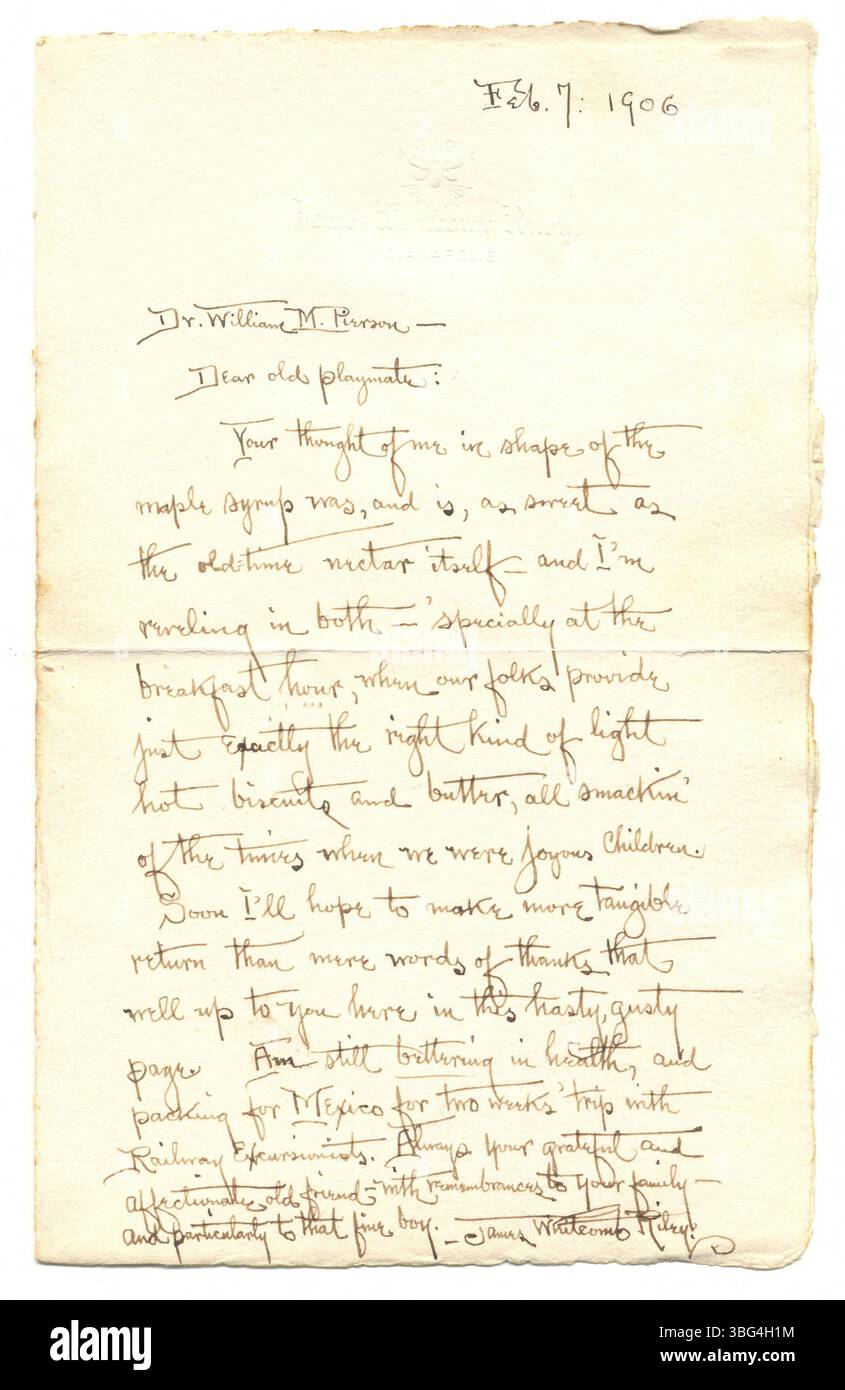 Feb. 7: 1906
Dr. William M. Pierson —
Dear old playmate:
Your thought of me in shape of the
maple syrup was, and is, as sweet as
the old-time nectar itself — and I'm
reveling in both — 'specially at the
breakfast hour, when our folks provide
just exactly the right kind of light
hot biscuits and butter, all smackin'
of the times when we were joyous children.
Soon I'll hope to make more tangible
return than mere words of thanks that
well up to you here in this hasty, gusty
page. Am still bettering in health, and
packing for Mexico for two weeks' trip with
Railway Excursionists. Always your grateful and
affectionate old friend—with remembrances to your family—
and particularly to that fine boy. — James Whitcomb Riley.
alamy
Image ID: 3BG4H1M
www.alamy.com